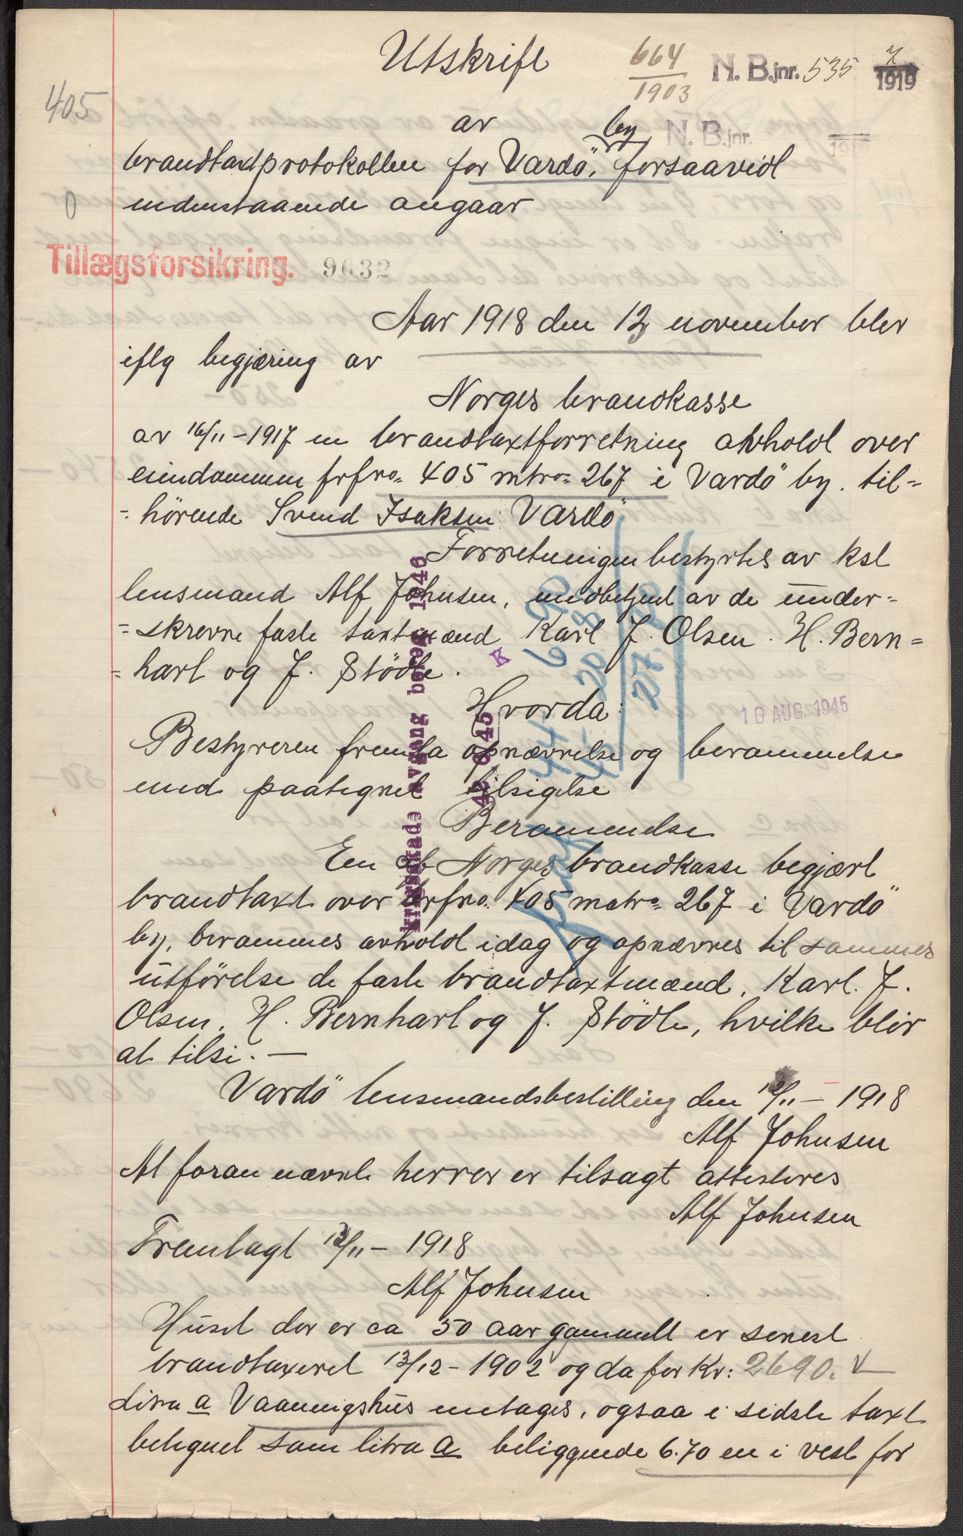 Utskrift
664
1903
N. B. jnr. 535
1919
405
av
N. B. jnr.
brandtaxtprotokollen for Vardö by forsaavidt
0
undenstaaende angaar
Tillægsforsikring. 9632
Aar 1918 den 13 november blev
iflg begjæring av
Norges brandkasse
av 16/11-1917 en brandtaxtforretning avholdt over
eiendommen frfno. 405 mtrno. 267 i Vardö by. til=
=hörende Svend Isaksen Vardö
Forretningen bestyrtes av kst
lensmand Alf Johnsen, medbetjent av de under=
=skrevne faste taxtmænd Karl J. Olsen. H. Bern=
=hart og J. Stödle.
Hvorda:
10 AUG. 1945
Bestyreren fremla opnævnelse og berammelse
med paategnet tilsigelse
Berammelse
En av Norges brandkasse begjært
brandtaxt over frfno. 405 matrno 267 i Vardö
by, berammes avholdt idag og opnævnes til sammes
utförelse de faste brandtaxtmænd, Karl. J.
Olsen, H. Bernhart og J. Stödle, hvilke blir
at tilsi. —
Vardö lensmandsbestilling den 12/11 – 1918
Alf Johnsen
At foran nævnte herrer er tilsagt attesteres
Alf Johnsen
Fremlagt 13/11 – 1918
Alf Johnsen
Huset der er ca 50 aar gammelt er senest
brandtaxeret 12/12 – 1902 og da for Kr: 2690.
Litra a Vaaningshus medtages, ogsaa i sidste taxt
betegnet som litra a beliggende 6.70 m i vest for
krigsskade avgang bereg. 1946
42/6/45